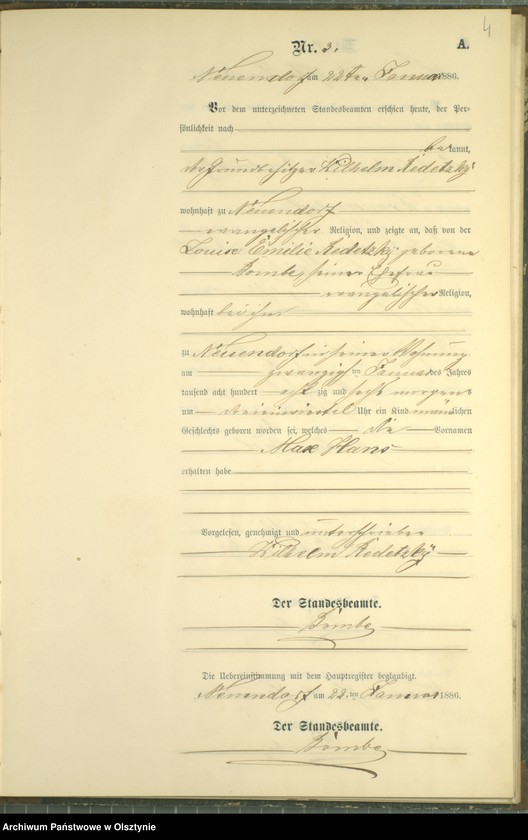 4
Nr. 3. A.
Neuendorf am 22ten Januar 1886.
Vor dem unterzeichneten Standesbeamten erschien heute, der Per-
sönlichkeit nach
bekannt,
der Grundbesitzer Wilhelm Redetzky
wohnhaft zu Neuendorf
evangelischer Religion, und zeigte an, daß von der
Louise Emilie Redetzky geborene
seiner Ehefrau
evangelischer Religion,
wohnhaft bei ihm
zu Neuendorf in seiner Wohnung
am zwanzigsten Januar des Jahres
tausend acht hundert achtzig und sechs morgens
um dreiviertel Uhr ein Kind männlichen
Geschlechts geboren worden sei, welches die Vornamen
Max Hans
erhalten habe
Vorgelesen, genehmigt und unterschrieben
Wilhelm Redetzky
Der Standesbeamte.
Die Uebereinstimmung mit dem Hauptregister beglaubigt.
Neuendorf am 22ten Januar 1886.
Der Standesbeamte.
Archiwum Państwowe w Olsztynie